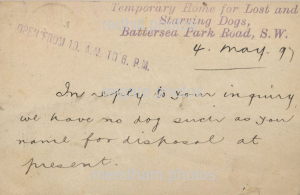 Temporary Home for Lost and
Starving Dogs,
Battersea Park Road, S.W.
OPEN FROM 10 A.M. TO 6 P.M.
4. May. 97
In reply to your inquiry
we have no dog such as you
name for disposal at
present.